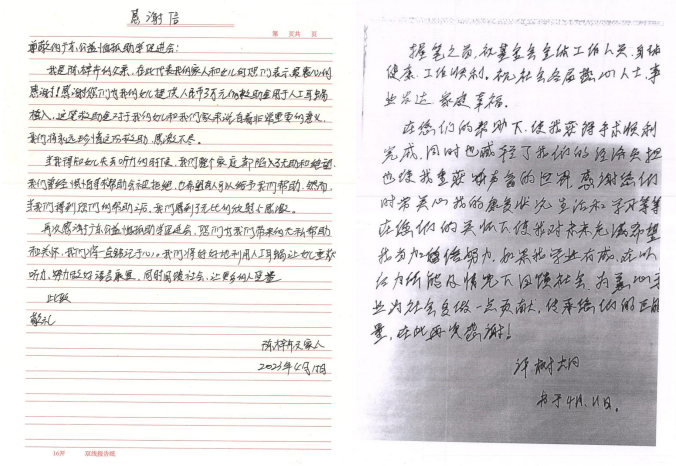 感谢信
第 页共 页
尊敬的广东公益恤孤助学促进会：
我是陈梓芹的父亲，在此代表我的家人和女儿向您们表示最衷心的
感谢！感谢您们为我的女儿提供人民币3万元的救助金用于人工耳蜗
植入，这笔救助金对于我的女儿和我们家来说有着非常重要的意义，
我们将永远珍惜这份救助，感激不尽。
当我得知女儿失去听力的时候，我们整个家庭都陷入了无助和绝望，
我们曾经很怕寻求帮助会被拒绝，也希望有人可以给予我们帮助，然而，
当我们得到您们的帮助之后，我们感到了无比的欣慰与感激。
再次感谢广东公益恤孤助学促进会，您们为我们带来的大力帮助
和关怀，我们将一直铭记于心。我们将好好地利用人工耳蜗让女儿重获
听力，努力做好语言康复，同时回馈社会，让更多的人受益
此致
敬礼
家人
2023年4月
16开 双线报告纸
握笔之前，祝基金会全体工作人员，身体
健康，工作顺利。祝社会各届热心人士，事
业发达 家庭幸福。
在您们的帮助下，使我获得手术顺利
完成，同时也减轻了我们的经济负担
也使我重获有声音的世界，感谢您们
时常关心我的康复状况 生活和学习等等
在您们的关怀下使我对未来充满希望
我会加倍努力，如果我学业有成，在以
后力所能及情况下回馈社会，为慈心事
业为社会多做一点贡献，传承您们的正能
量，在此再次感谢！
许树大
4月11日。